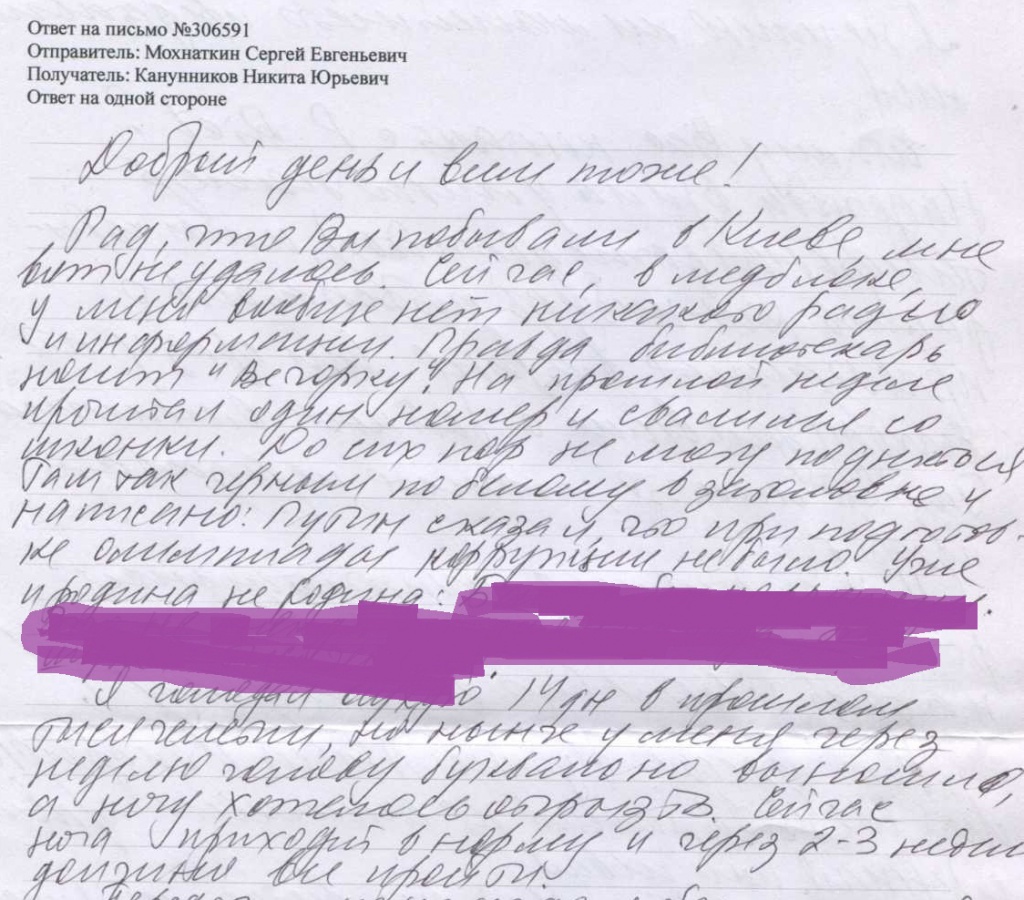 Ответ на письмо №306591
Отправитель: Мохнаткин Сергей Евгеньевич
Получатель: Канунников Никита Юрьевич
Ответ на одной стороне
Добрый день и вам тоже!
Рад, что Вы побывали в Киеве, мне
вот не удалось. Сейчас, в медблоке,
у меня вообще нет никакого радио
и информации. Правда библиотекарь
носит "Вечорку". На прошлой неделе
прочитал один номер и свалился со
шконки. До сих пор не могу подняться
Там так черным по белому в заголовке и
написано: Путин сказал, что при подготов-
ке олимпиады коррупции не было. Уже
и родина не родина!
Я голодал сухую 14 дн в прошлом
тысячелетии, но нынче у меня через
неделю голову буквально выносило,
а ногу хотелось отгрызть. Сейчас
нога приходит в норму и через 2-3 недели
должно все пройти.